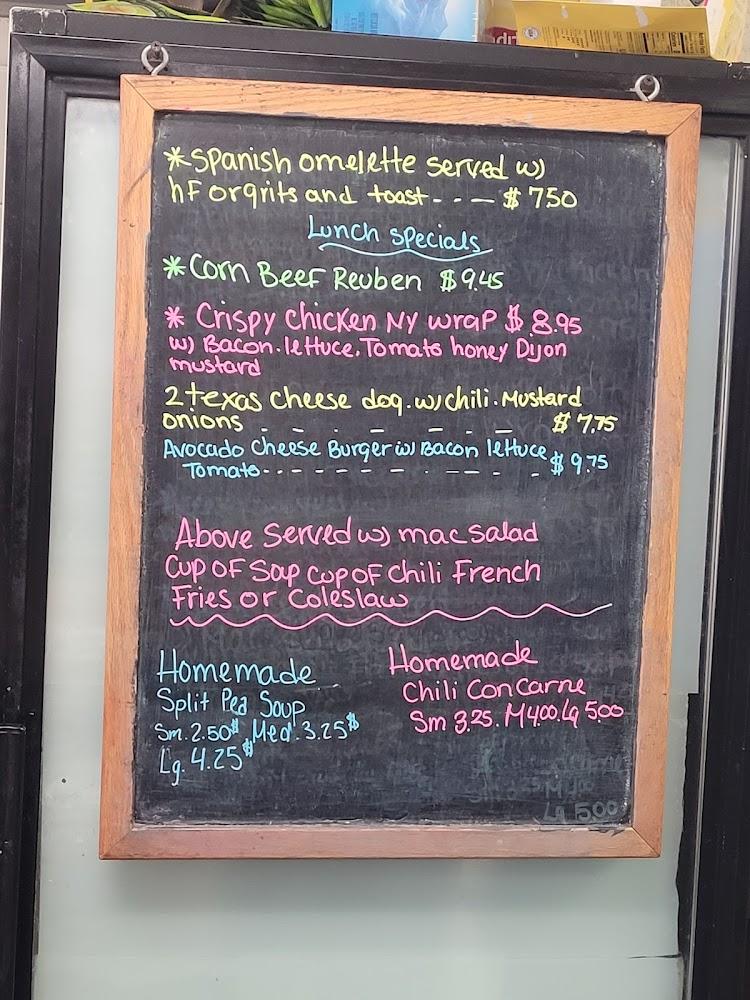 *Spanish omelette served w)
hF orgrits and toast - - - — $ 7.50
Lunch specials
*Corn Beef Reuben $ 9.45
* Crispy chicken NY wrap $ 8.95
w) Bacon. lettuce. Tomato honey Dijon
mustard
2 texas cheese dog. w) chili. Mustard
onions - - - - - - - $ 7.75
Avocado cheese Burger w) Bacon lettuce
Tomato - - - - - - - - - - - $ 9.75
Above served w) mac salad
Cup of Soap cup of chili French
Fries or coleslaw
Homemade
Split Pea Soup
Sm. 2.50$ Med. 3.25$
Lg. 4.25$
Homemade
Chili Con Carne
Sm 3.25. M 4.00. Lg 5.00
Lg 5.00